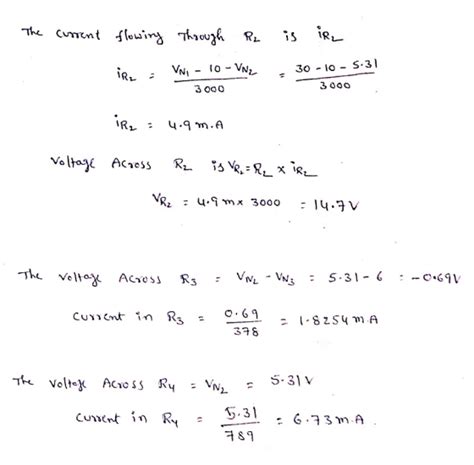 The current flowing Through R2 is iR2
iR2 = VN1 - 10 - VN2 / 3000 = 30 - 10 - 5.31 / 3000
iR2 = 4.9 m.A
Voltage Across R2 is VR2 = R2 × iR2
VR2 = 4.9 m × 3000 = 14.7 V
The voltage Across R3 = VN2 - VN3 = 5.31 - 6 : -0.69V
current in R3 = 0.69 / 378 = 1.8254 m A
The Voltage Across R4 = VN2 = 5.31 V
Current in R4 = 5.31 / 789 = 6.73 m A.